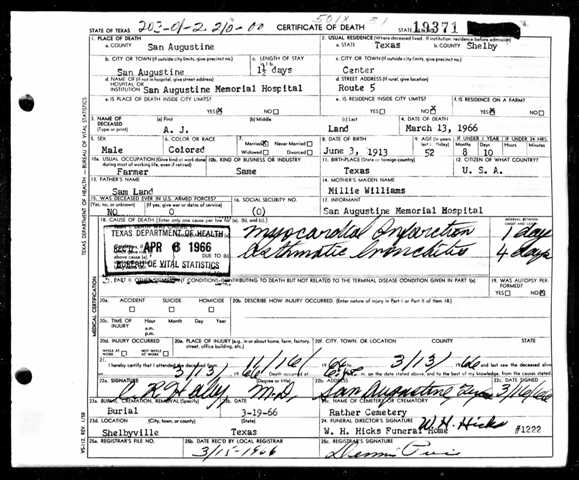 STATE OF TEXAS
203-01-2.210-00
CERTIFICATE OF DEATH
STATE
19371
1. PLACE OF DEATH
a. COUNTY San Augustine
2. USUAL RESIDENCE (Where deceased lived. If institution: residence before admission)
a. STATE Texas b. COUNTY Shelby
b. CITY OR TOWN (If outside city limits, give precinct no.) San Augustine
c. LENGTH OF STAY 1½ days
c. CITY OR TOWN (If outside city limits, give precinct no.) Center
d. NAME OF (If not in hospital, give street address) HOSPITAL OR INSTITUTION San Augustine Memorial Hospital
d. STREET ADDRESS (If rural, give location) Route 5
e. IS PLACE OF DEATH INSIDE CITY LIMITS? YES NO
e. IS RESIDENCE INSIDE CITY LIMITS? YES NO
f. IS RESIDENCE ON A FARM? YES NO
3. NAME OF DECEASED (Type or print)
(a) First A. J.
(b) Middle
(c) Last Land
4. DATE OF DEATH March 13, 1966
5. SEX Male
6. COLOR OR RACE Colored
7. Married Never Married Widowed Divorced
8. DATE OF BIRTH June 3, 1913
9. AGE 52
Months 8 Days 10
10a. USUAL OCCUPATION (Give kind of work done during most of working life, even if retired) Farmer
10b. KIND OF BUSINESS OR INDUSTRY Same
11. BIRTHPLACE (State or foreign country) Texas
12. CITIZEN OF WHAT COUNTRY? U. S. A.
13. FATHER'S NAME Sam Land
14. MOTHER'S MAIDEN NAME Millie Williams
15. WAS DECEASED EVER IN U.S. ARMED FORCES? (Yes, no, or unknown) (If yes, give war or dates of service) No 0
16. SOCIAL SECURITY NO. (0)
17. INFORMANT San Augustine Memorial Hospital
18. CAUSE OF DEATH
Myocardial Infarction 1 day
Asthmatic bronchitis 4 days
TEXAS DEPARTMENT OF HEALTH
REC'D APR 6 1966
BUREAU OF VITAL STATISTICS
CONDITIONS CONTRIBUTING TO DEATH BUT NOT RELATED TO THE TERMINAL DISEASE CONDITION GIVEN IN PART I(a)
19. WAS AUTOPSY PERFORMED? YES NO
20a. ACCIDENT SUICIDE HOMICIDE
20b. DESCRIBE HOW INJURY OCCURRED. (Enter nature of injury in Part I or Part II of item 18.)
20c. TIME OF INJURY Hour Month Day Year a.m. p.m.
20d. INJURY OCCURRED WHILE AT WORK NOT WHILE AT WORK
20e. PLACE OF INJURY (e.g. in or about home, farm, factory, street, office building, etc.)
20f. CITY, TOWN, OR LOCATION COUNTY STATE
21. I hereby certify that I attended the deceased
3/13/66
22a. SIGNATURE C R Haley M.D. (Degree or title)
San Augustine Texas
3/16/66
23a. BURIAL, CREMATION, REMOVAL (Specify) Burial
3-19-66
NAME OF CEMETERY OR CREMATORY Rather Cemetery
23d. LOCATION (City, town, or county) (State) Shelbyville Texas
24. FUNERAL DIRECTOR'S SIGNATURE W. H. Hicks
W. H. Hicks Funeral Home #1222
25a. REGISTRAR'S FILE NO.
25b. DATE REC'D BY LOCAL REGISTRAR 3/15-1966
REGISTRAR'S SIGNATURE
TEXAS DEPARTMENT OF HEALTH - BUREAU OF VITAL STATISTICS
MEDICAL CERTIFICATION